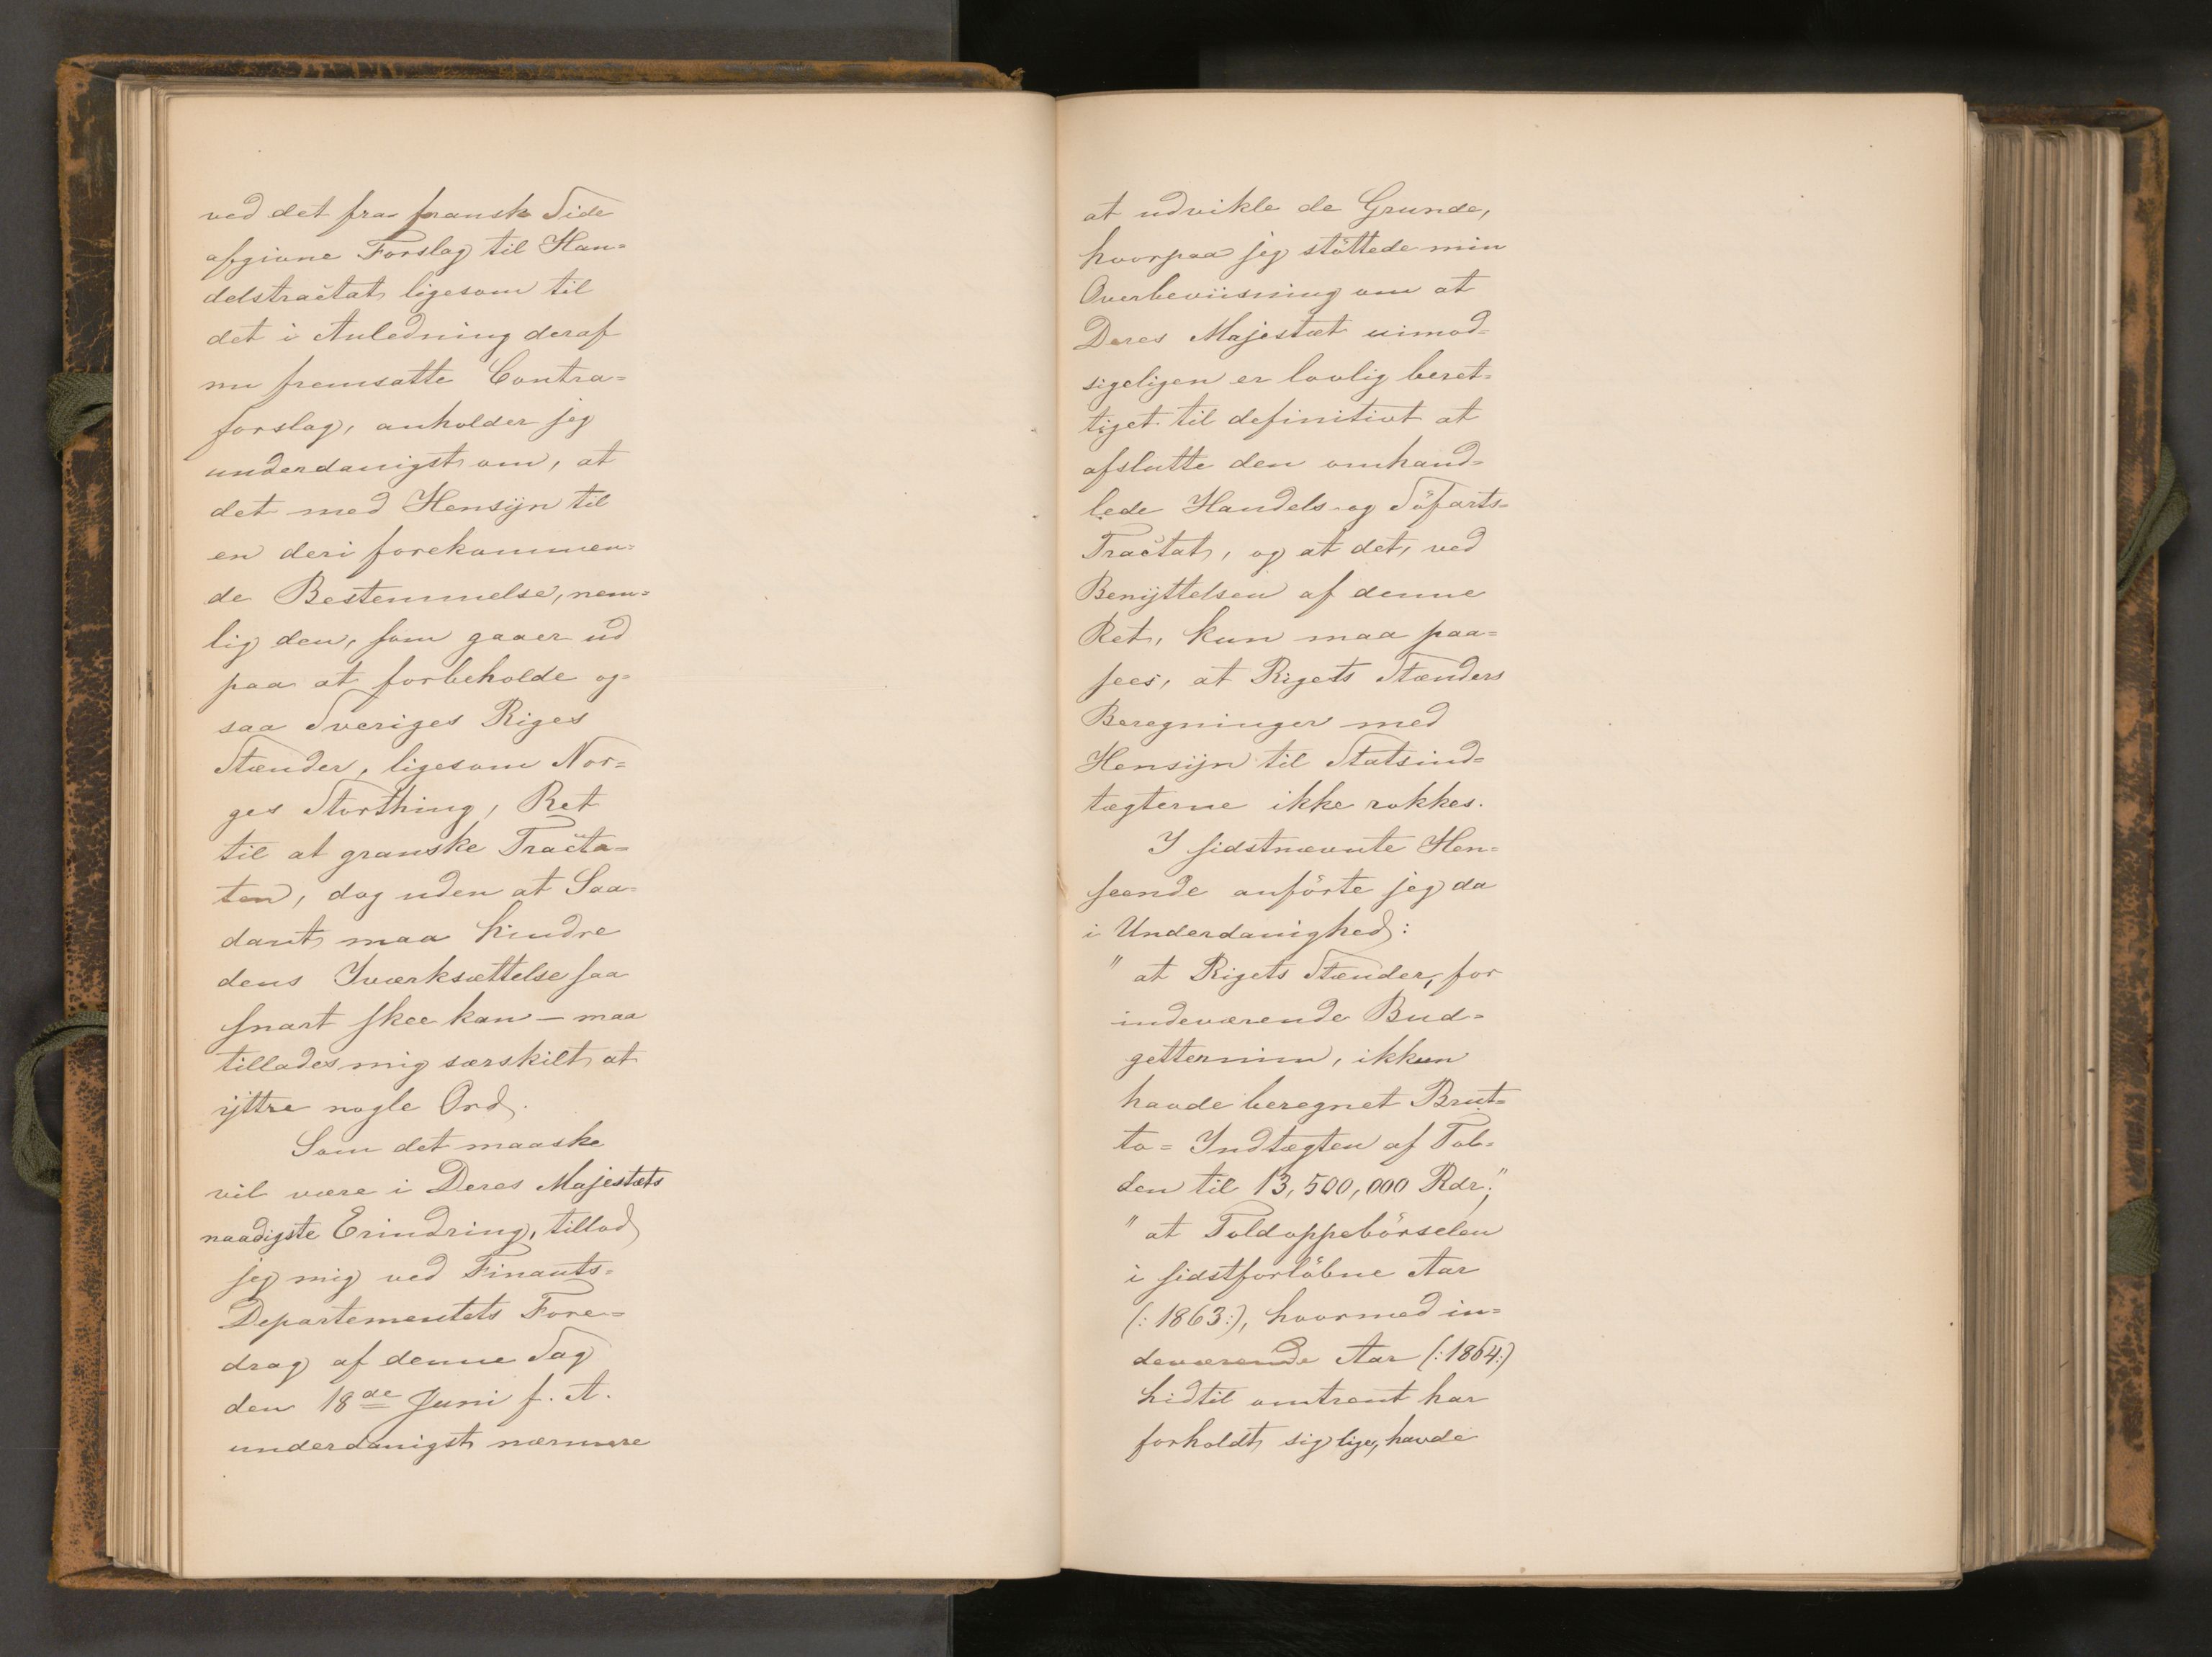 ved det fra fransk Side
afgivne Forslag til Han=
delstractat ligesom til
det i Anledning deraf
nu fremsatte Contra=
forslag, anholder jeg
underdanigst om, at
det med Hensÿn til
en deri forekommen=
de Bestemmelse, nem=
lig den, som gaaer ud
paa at forbeholde og=
saa Sveriges Riges
Stænder, ligesom Nor=
ges Storthing, Ret
til at granske Tracta=
ten, dog uden at Saa=
dant maa hindre
dens Iværksættelse saa
snart skee kan – maa
tillades mig særskilt at
ÿttre nogle Ord.
Som det maaske
vil være i Deres Majestæts
naadigste Erindring, tillod
jeg mig ved Finants=
Departementets Fore=
drag af denne Sag
den 18de Juni f. A.
underdanigst nærmere
at udvikle de Grunde,
hvorpaa jeg stöttede min
Overbeviisning om at
Deres Majestæt uimod=
sigeligen er lovlig beret=
tiget til definitivt at
afslutte den omhand=
lede Handels- og Söfarts=
Tractat, og at det, ved
Benÿttelsen af denne
Ret, kun maa paa=
sees, at Rigets Stænders
Beregninger med
Hensÿn til Statsind=
tægterne ikke rokkes.
I sidstnævnte Hen=
seende anförte jeg da
i Underdanighed:
" at Rigets Stænder, for
indeværende Bud=
gettermin, ikkun
havde beregnet Brut=
to= Indtægten af Tol=
den til 13,500,000 Rdr.";
" at Toldoppebörselen
i sidstforlöbne Aar
(: 1863:), hvormed in=
deværende Aar (:1864:)
hidtil omtrent har
forholdt sig lige, havde